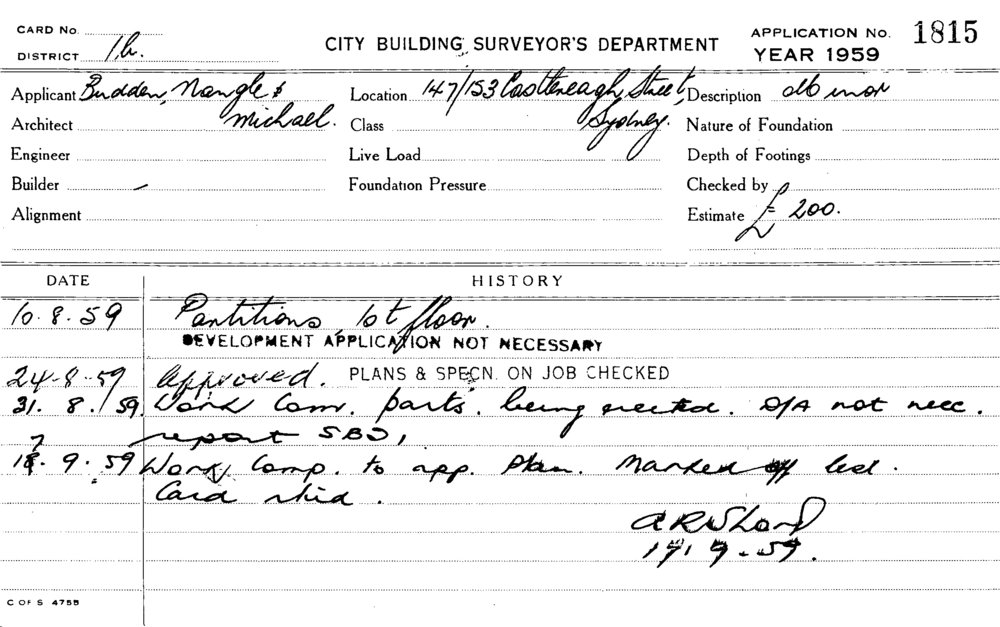 CARD No.
DISTRICT 1h.
CITY BUILDING SURVEYOR'S DEPARTMENT
APPLICATION No. 1815
YEAR 1959
Applicant Budden, Nangle &
Michael.
Location 147/153 Castlereagh Street,
Sydney.
Description
Architect
Class
Nature of Foundation
Engineer
Live Load
Depth of Footings
Builder –
Foundation Pressure
Checked by
Alignment
Estimate £ 200.
DATE
HISTORY
10.8.59 Partitions 1st floor.
DEVELOPMENT APPLICATION NOT NECESSARY
24-8-59 Approved. PLANS & SPECN. ON JOB CHECKED
31.8.59. Work Com. parts. being erected. D/A not nec.
report SBD,
9.59 Work Comp. to app. plan. Marked off
Card
9.59.
C OF S 475B